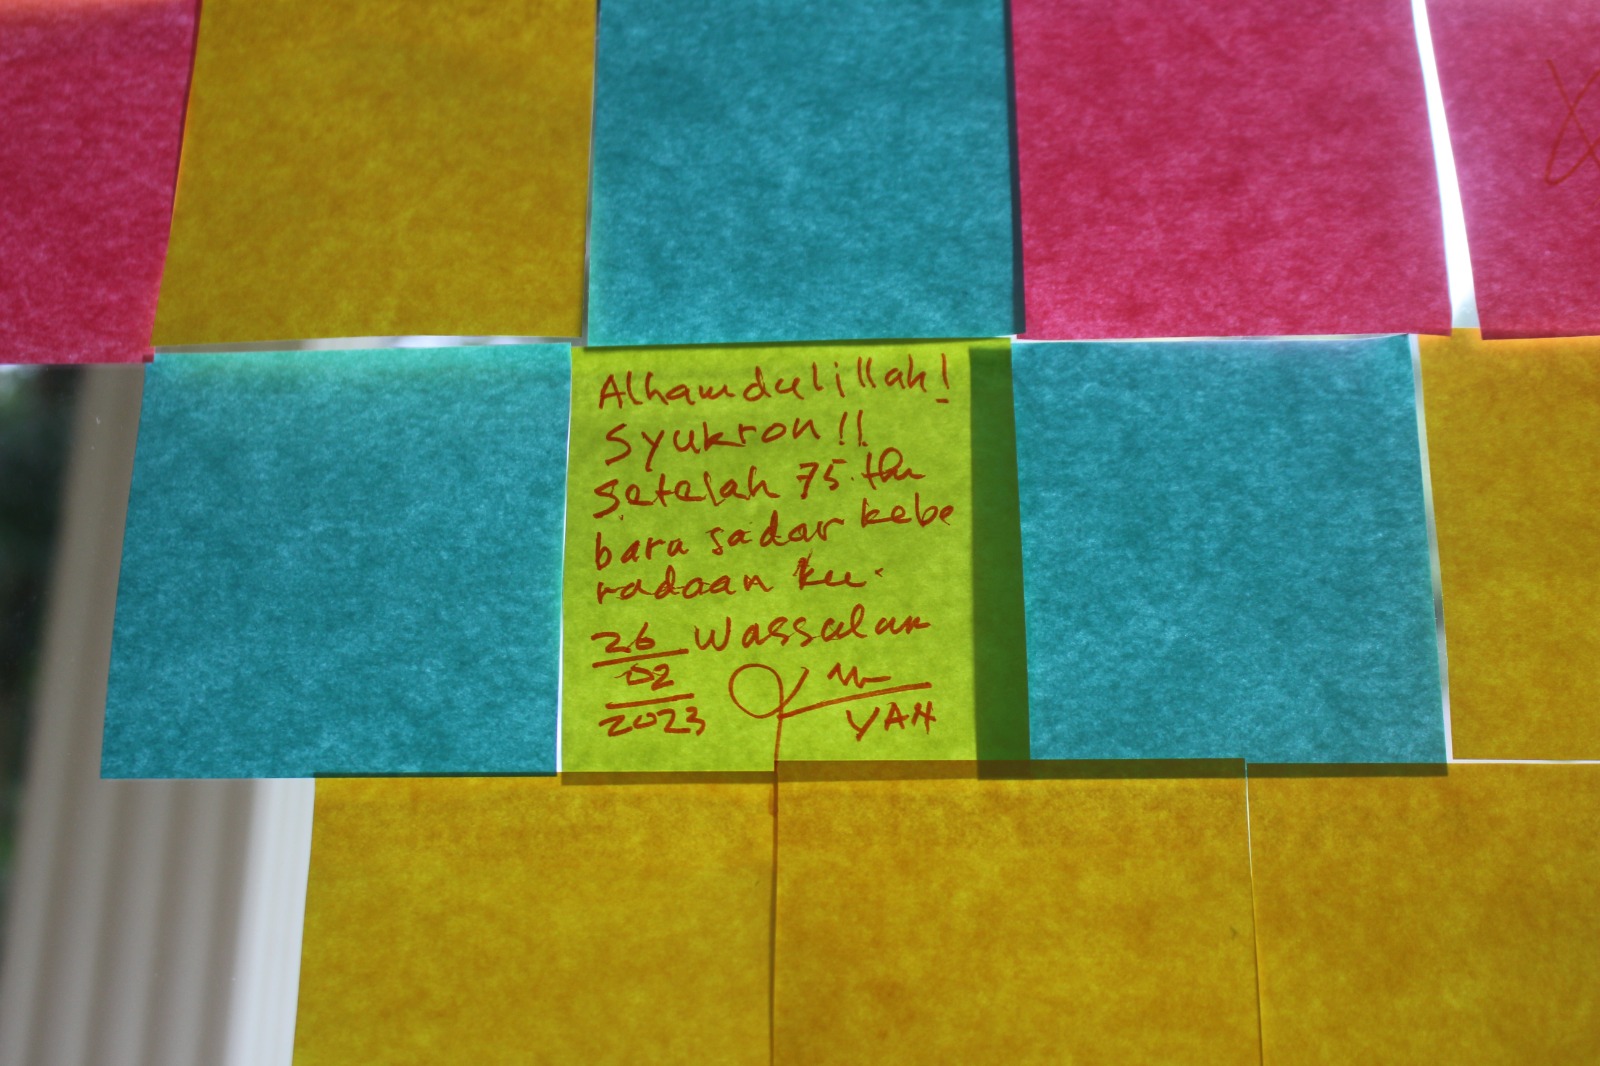 Alhamdulillah!
Syukron!!
Setelah 75 thn
baru sadar kebe
radaan ku.
Wassalam
26
02
2023
YAN